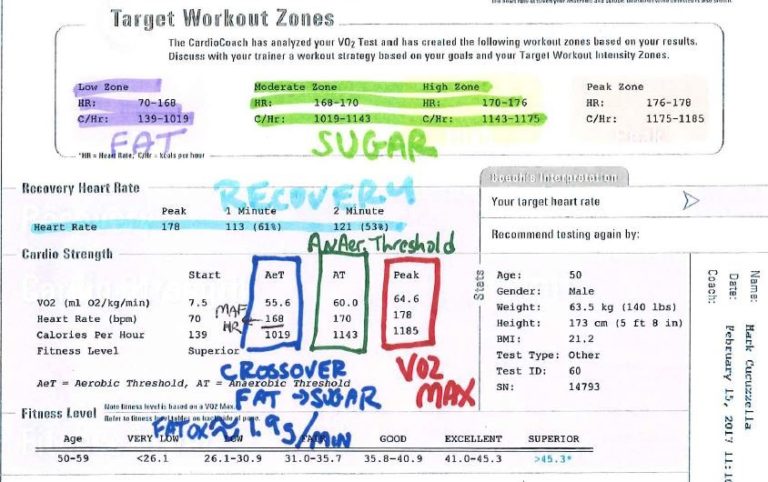 Target Workout Zones
The CardioCoach has analyzed your VO2 Test and has created the following workout zones based on your results.
Discuss with your trainer a workout strategy based on your goals and your Target Workout Intensity Zones.
Low Zone Moderate Zone High Zone Peak Zone
HR: 70-168 HR: 168-170 HR: 170-176 HR: 176-178
C/Hr: 139-1019 C/Hr: 1019-1143 C/Hr: 1143-1175 C/Hr: 1175-1185
FAT SUGAR
*HR = Heart Rate, C/Hr = kcals per hour
Recovery Heart Rate RECOVERY
Peak 1 Minute 2 Minute
Heart Rate 178 113 (61%) 121 (53%)
Coach's Interpretation
Your target heart rate
Recommend testing again by:
AnAer. Threshold
Cardio Strength
Start AeT AT Peak
VO2 (ml O2/kg/min) 7.5 55.6 60.0 64.6
Heart Rate (bpm) 70 168 170 178
Calories Per Hour 139 1019 1143 1185
Fitness Level Superior
MAF
HR
CROSSOVER
FAT → SUGAR
VO2
MAX
AeT = Aerobic Threshold, AT = Anaerobic Threshold
Stats
Age: 50
Gender: Male
Weight: 63.5 kg (140 lbs)
Height: 173 cm (5 ft 8 in)
BMI: 21.2
Test Type: Other
Test ID: 60
SN: 14793
Mark Cucuzzella
Date: February 15, 2017 11:10
Coach:
Fitness Level
Note fitness level is based on a VO2 Max.
Refer to fitness level tables on back side of page.
FATOX ≈ 1.9g/MIN
Age VERY LOW LOW FAIR GOOD EXCELLENT SUPERIOR
50-59 <26.1 26.1-30.9 31.0-35.7 35.8-40.9 41.0-45.3 >45.3*